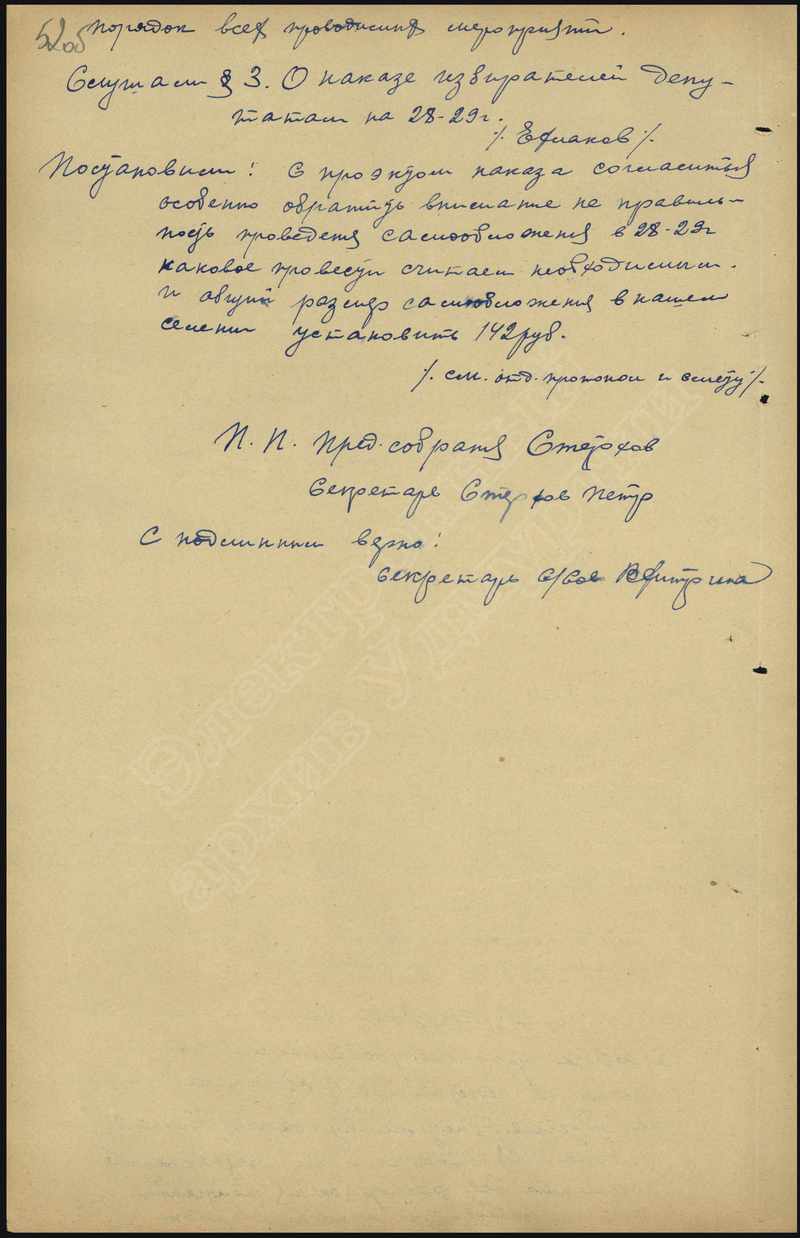 52об
порядок всех проводимых мероприятий.
Слушали § 3. О наказе избирателей депу-
татам на 28-29г.
/. Ефлаков /.
Постановили: С проэктом наказа согласиться
особенно обратить внимание не правиль-
ность проведения самообложения в 28-29г
каковое провести считаем необходимым.
и общий размер самообложения в нашем
селении установить 142руб.
/. см. отд. протокол и смету /.
П. П. Пред. собрания Стерхов
Секретарь Стерхов Петр
С подлинным верно:
Секретарь с/сов
Электронный
архив Удмуртии